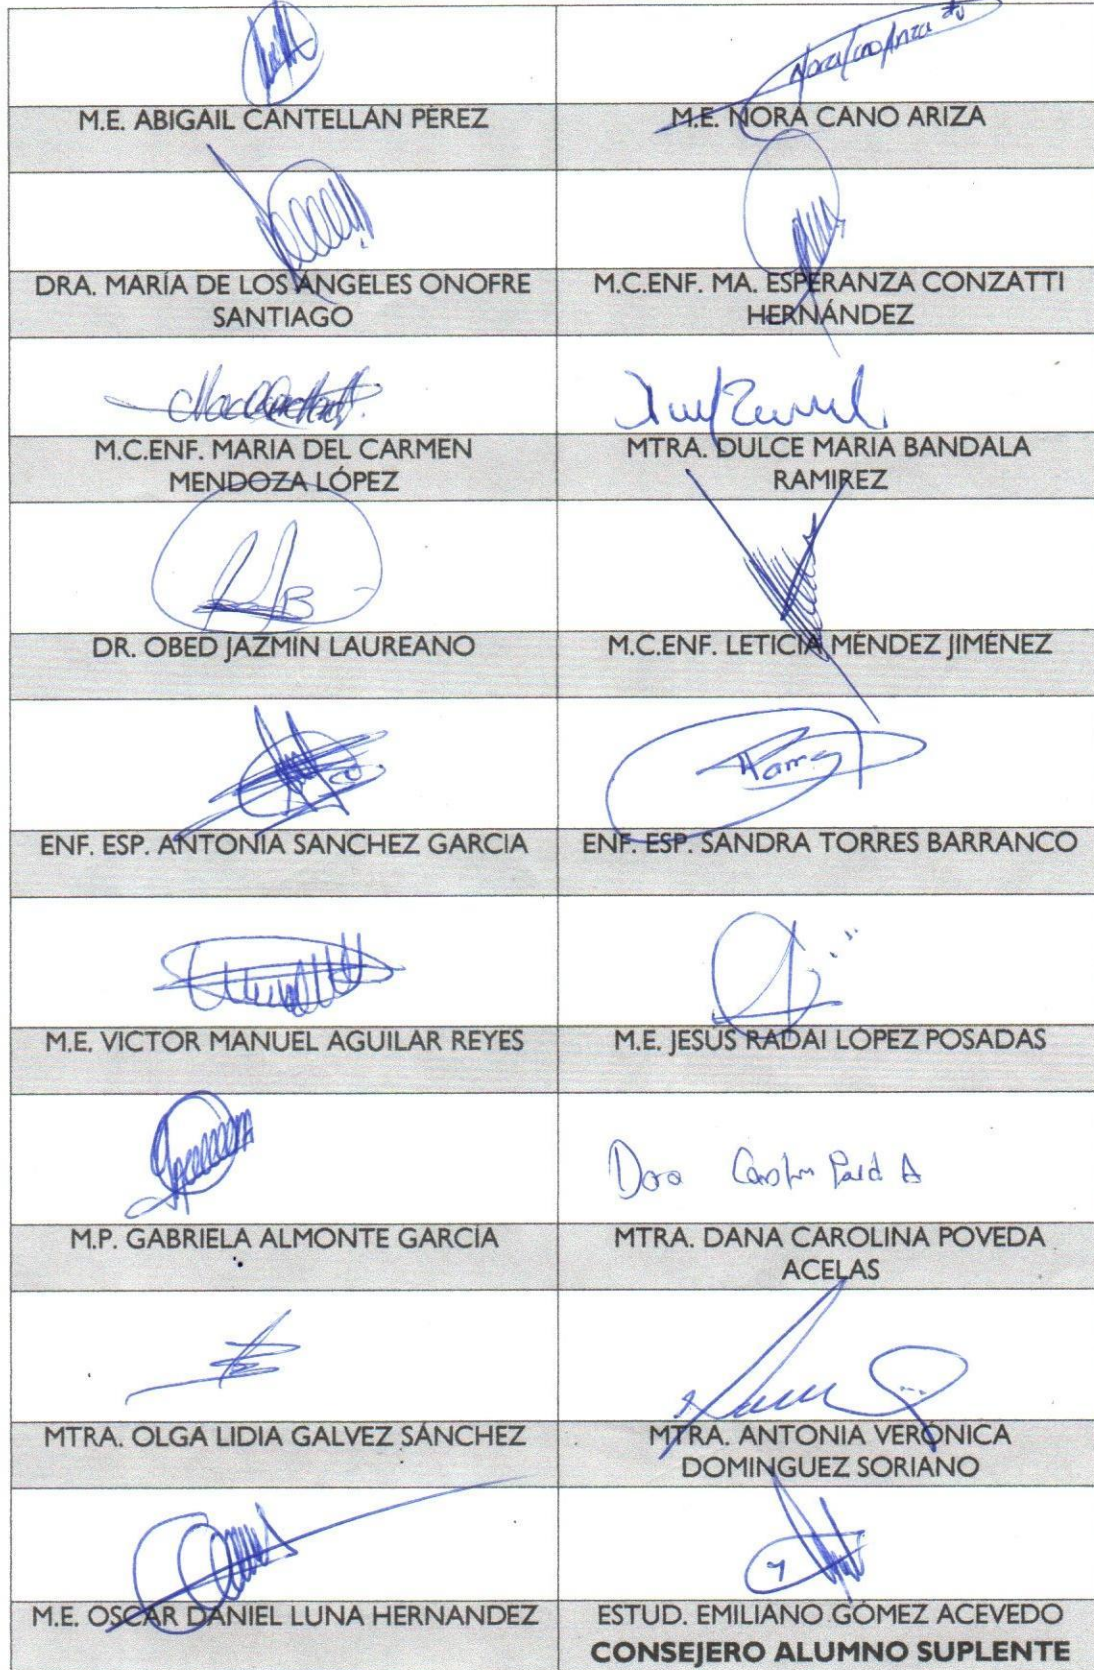 Nora Cano Ariza
M.E. ABIGAIL CANTELLÁN PÉREZ
M.E. NORA CANO ARIZA
DRA. MARÍA DE LOS ÁNGELES ONOFRE
SANTIAGO
M.C.ENF. MA. ESPERANZA CONZATTI
HERNÁNDEZ
M.C.ENF. MARIA DEL CARMEN
MENDOZA LÓPEZ
MTRA. DULCE MARIA BANDALA
RAMIREZ
DR. OBED JAZMIN LAUREANO
M.C.ENF. LETICIA MÉNDEZ JIMÉNEZ
ENF. ESP. ANTONIA SANCHEZ GARCIA
ENF. ESP. SANDRA TORRES BARRANCO
M.E. VICTOR MANUEL AGUILAR REYES
M.E. JESUS RADAI LÓPEZ POSADAS
M.P. GABRIELA ALMONTE GARCÍA
MTRA. DANA CAROLINA POVEDA
ACELAS
MTRA. OLGA LIDIA GALVEZ SÁNCHEZ
MTRA. ANTONIA VERÓNICA
DOMINGUEZ SORIANO
M.E. OSCAR DANIEL LUNA HERNANDEZ
ESTUD. EMILIANO GÓMEZ ACEVEDO
CONSEJERO ALUMNO SUPLENTE